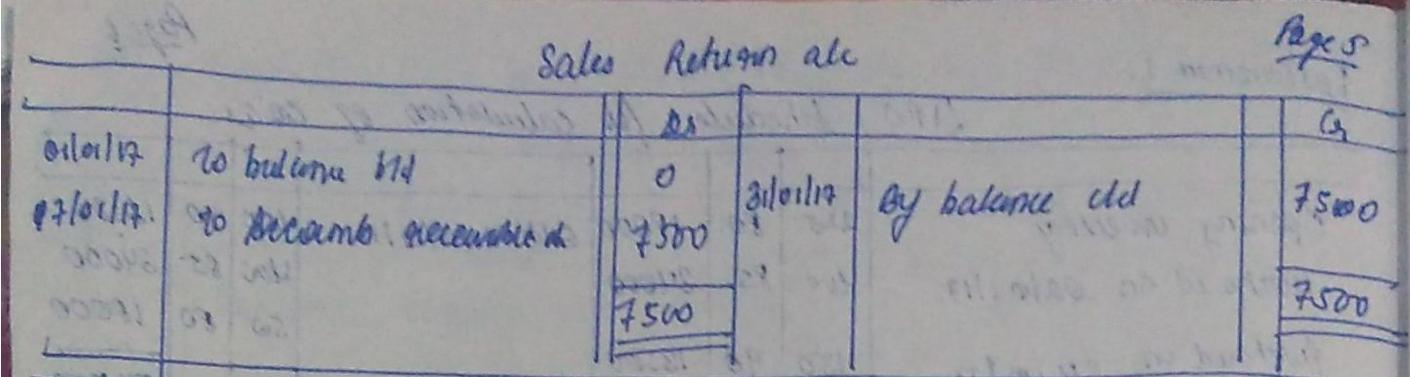 Page 5
Sales Return a/c
Dr
Cr
01/01/17 To balance b/d 0 31/01/17 By balance c/d 75000
07/01/17. To Accounts receivable 7500
7500 7500